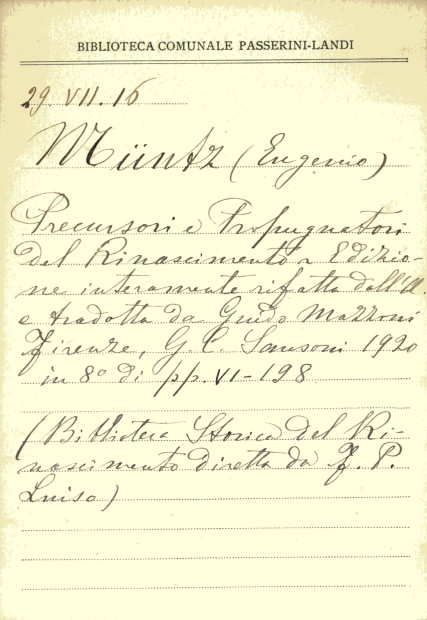 BIBLIOTECA COMUNALE PASSERINI-LANDI
29. VII. 16
Müntz (Eugenio)
Precursori e Propugnatori
del Rinascimento - Edizio-
ne interamente rifatta dall'A.
e tradotta da Guido Mazzoni
Firenze, G. C. Sansoni 1920
in 8° di pp. VI-198
(Biblioteca Storica del Ri-
nascimento diretta da F. P.
Luiso)